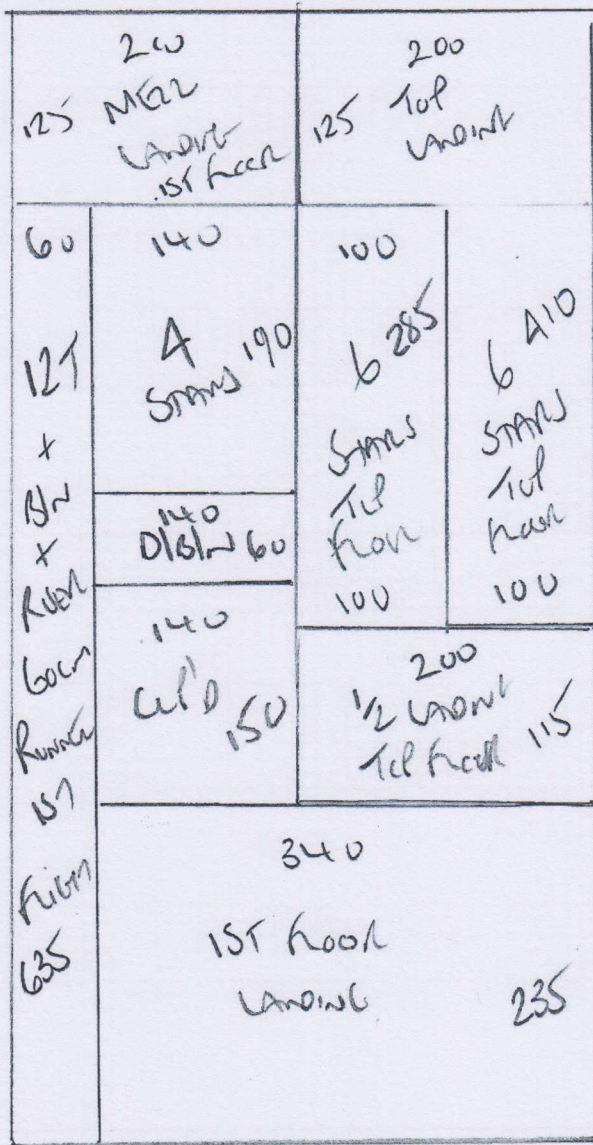 200
125 MEZZ
LANDING
1ST FLOOR
200
125 TOP
LANDING
60
12T
+
B/N
+
RISER
60CM
RUNNER
1ST
FLIGHT
635
140
4 190
STAIRS
140
D/B/N 60
140
CUP'D
150
100
6 285
STAIRS
TOP
FLOOR
100
6 410
STAIRS
TOP
FLOOR
100
200
1/2 LANDING
TOP FLOOR 115
340
1ST FLOOR
LANDING 235